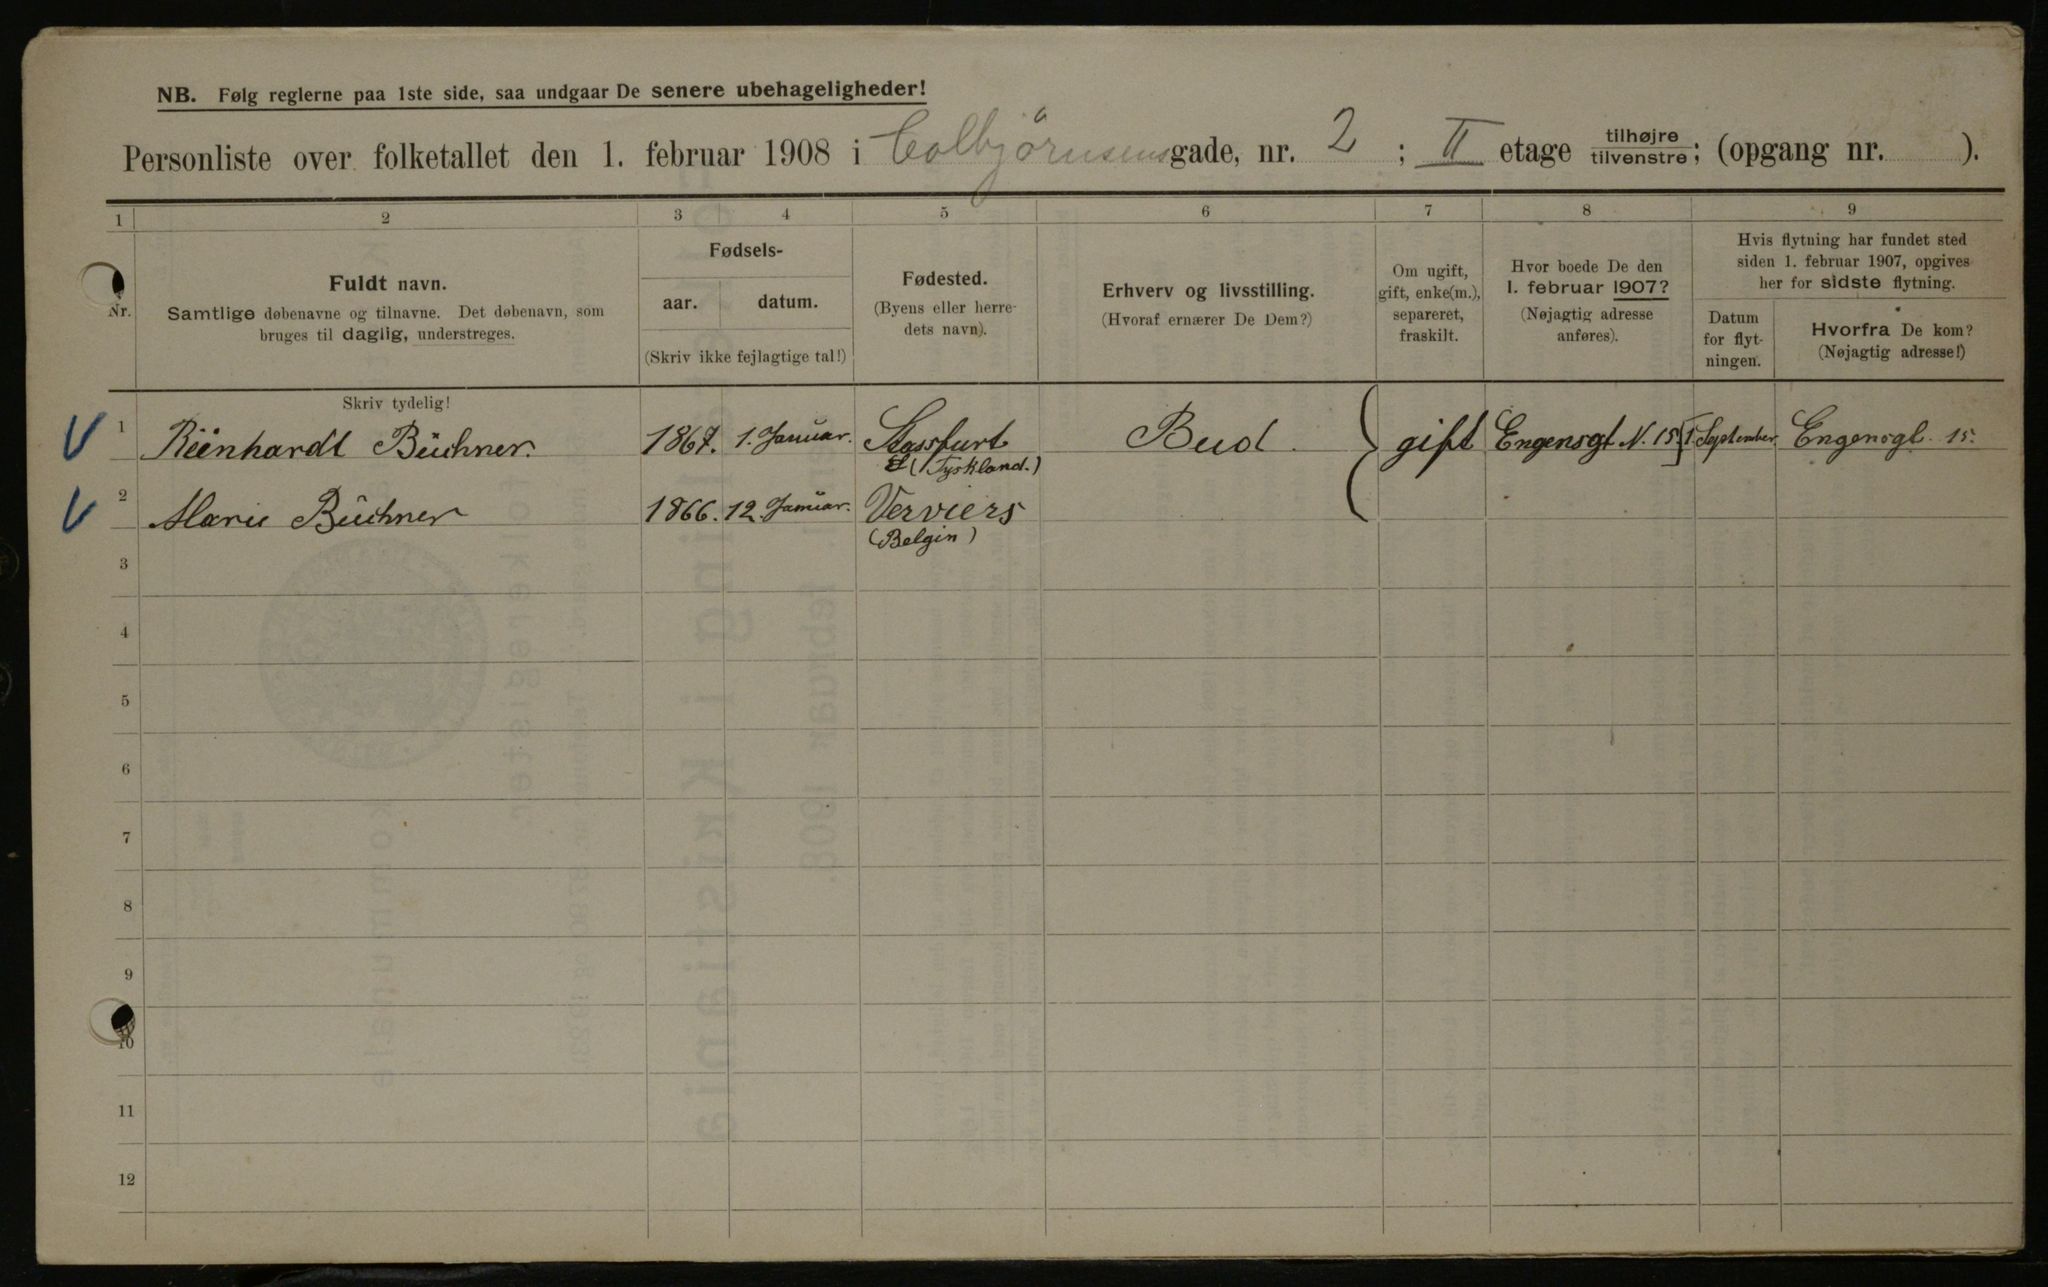 NB. Følg reglerne paa 1ste side, saa undgaar De senere ubehageligheder!
Personliste over folketallet den 1. februar 1908 i Colbjörnsensgade, nr. 2 ; II etage tilhøjre tilvenstre; (opgang nr. ).
1 2 3 4 5 6 7 8 9
Nr.
Fuldt navn.
Samtlige døbenavne og tilnavne. Det døbenavn, som
bruges til daglig, understreges.
Fødsels-
aar. datum.
(Skriv ikke fejlagtige tal!)
Fødested.
(Byens eller herre-
dets navn).
Erhverv og livsstilling.
(Hvoraf ernærer De Dem?)
Om ugift,
gift, enke(m.),
separeret,
fraskilt.
Hvor boede De den
1. februar 1907?
(Nøjagtig adresse
anføres).
Hvis flytning har fundet sted
siden 1. februar 1907, opgives
her for sidste flytning.
Datum
for flyt-
ningen.
Hvorfra De kom?
(Nøjagtig adresse!)
Skriv tydelig!
1 Reinhardt Büchner. 1867. 1. Januar. Stassfurt Bud. gift Engensgt N. 15. 1. September. Engensgt. 15.
(Tyskland.)
2 Marie Büchner 1866. 12. Januar. Verviers
(Belgin)
3
4
5
6
7
8
9
10
11
12